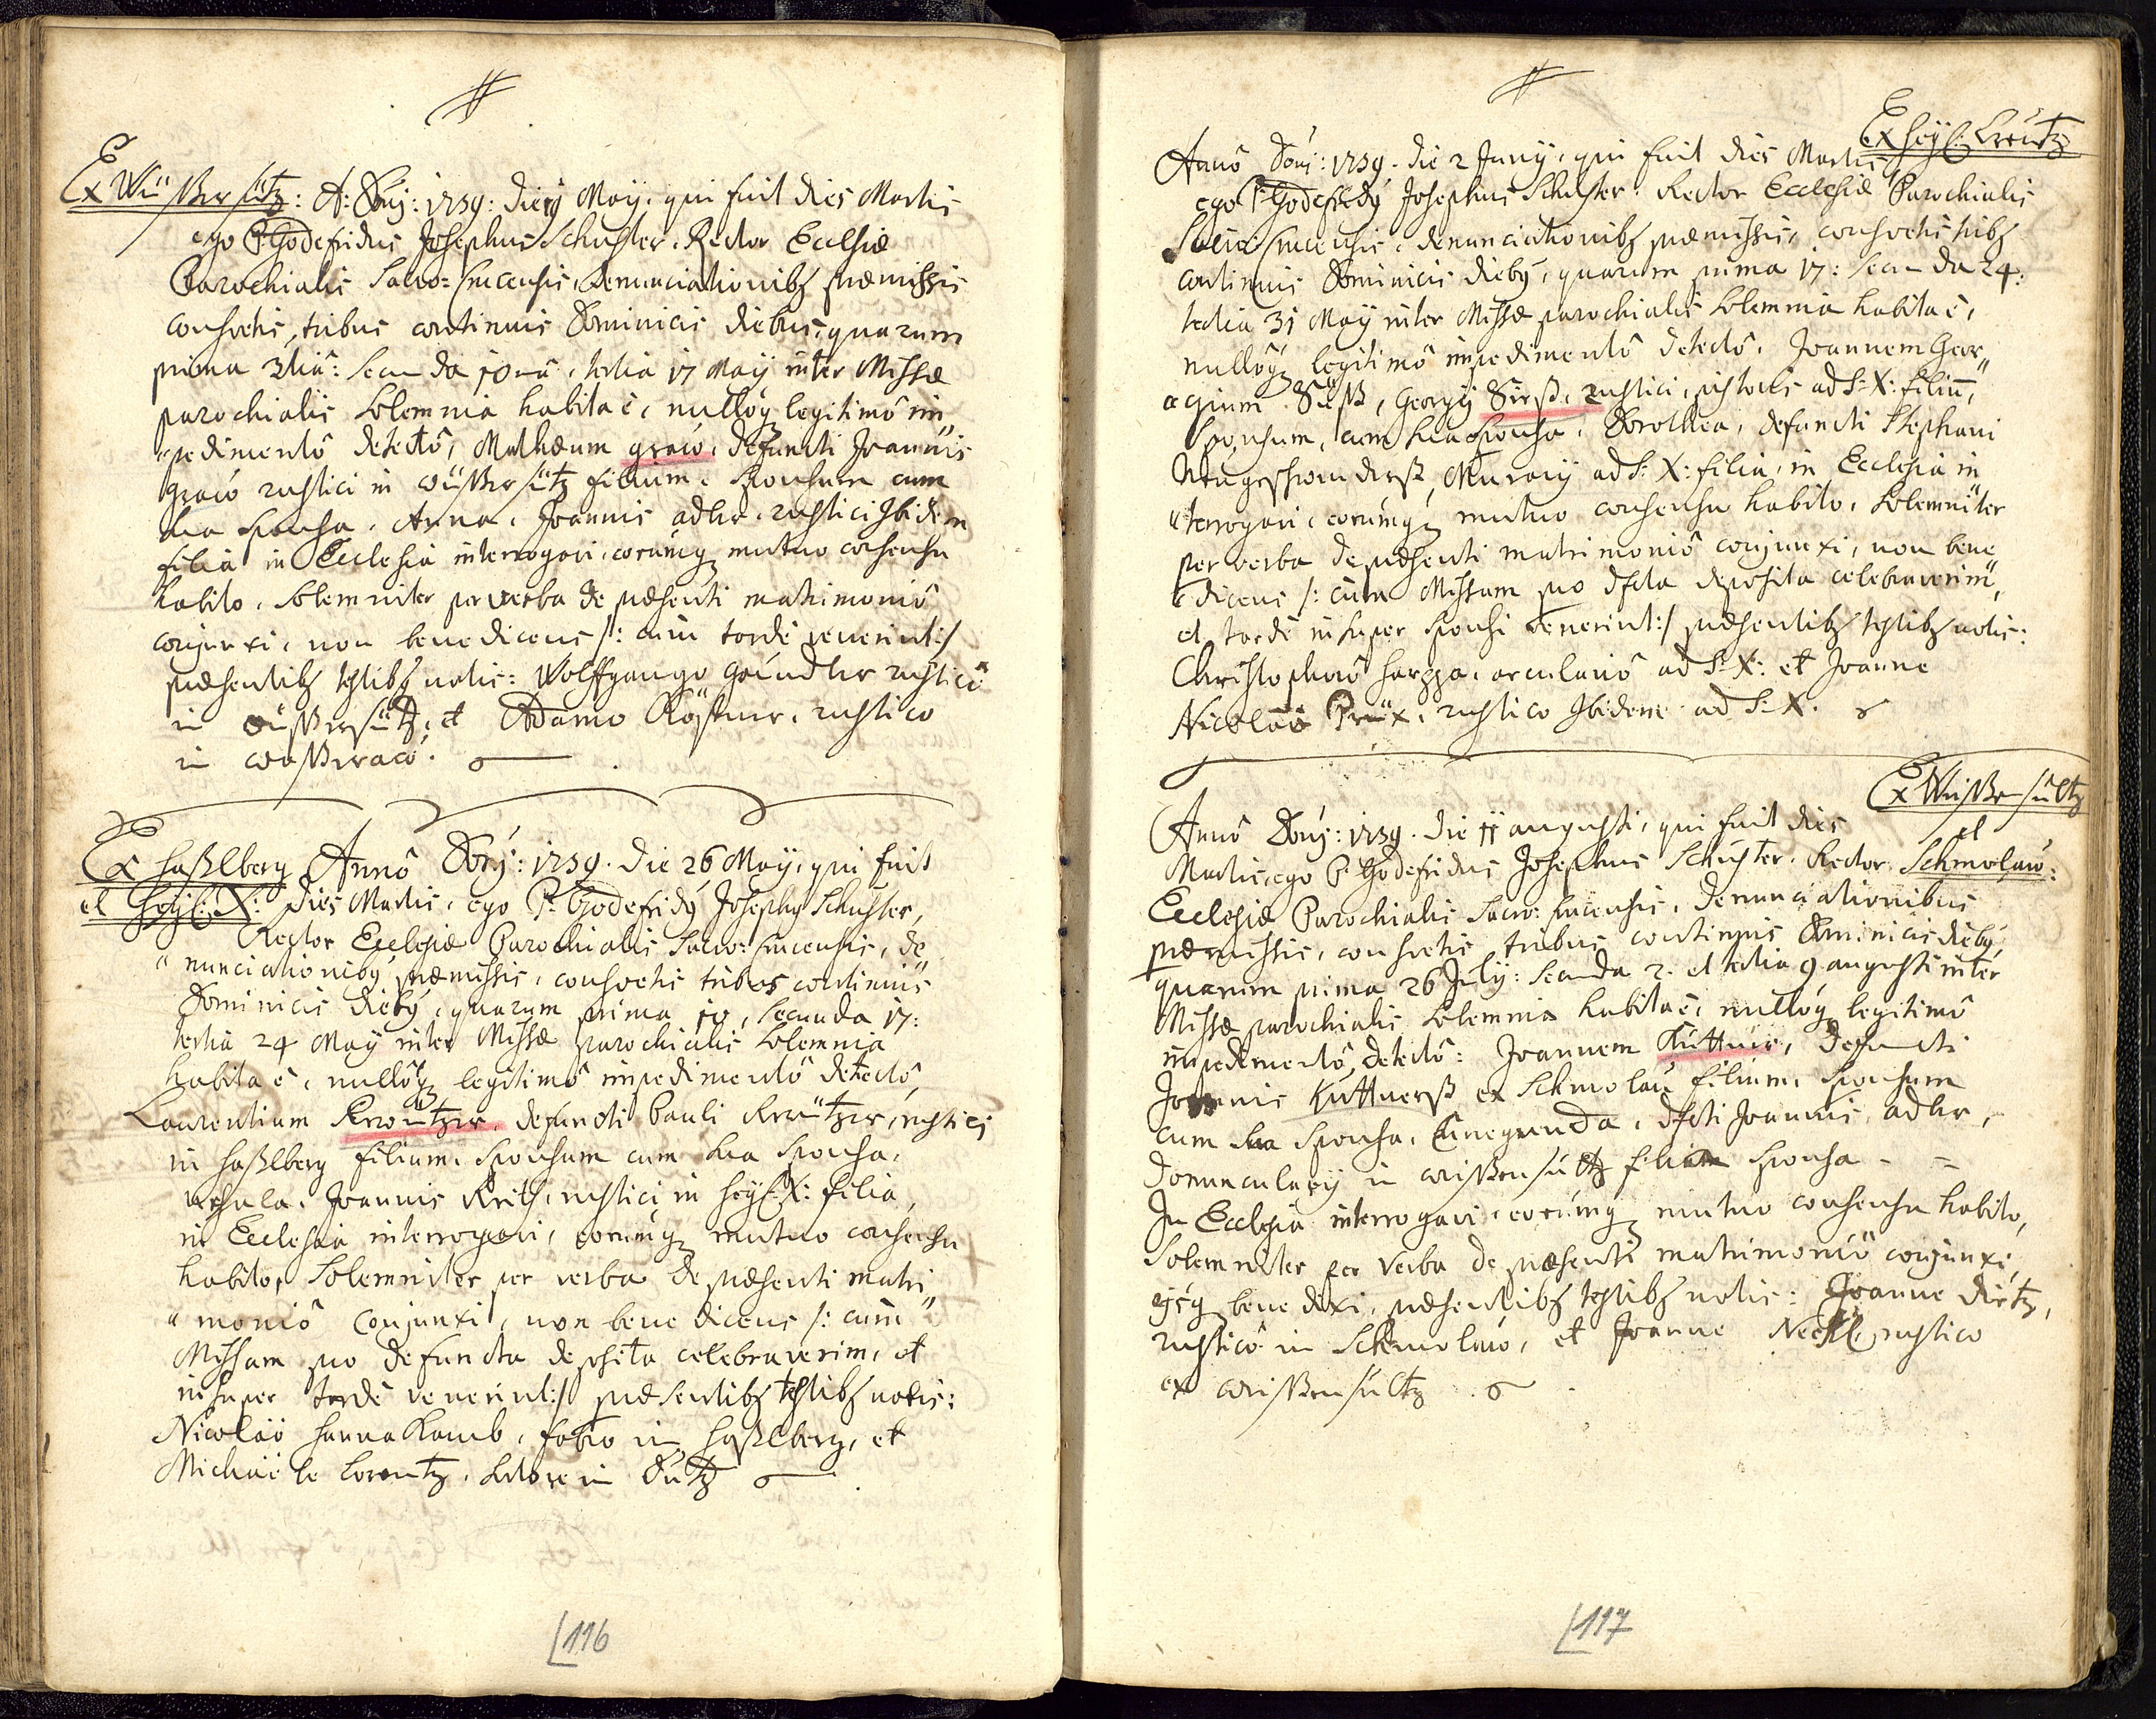 Ex Wüßersütz: A: Dnj: 1739: die 19 May, qui fuit dies Martis
ego P. Godefridus Josephus Schuster, Rector Ecclsiæ
Parochialis Sacro=Crucensis, Denunciationibz præmissis
consvetis, tribus continuis Dominicis diebus, quarum
prima 3tiâ: secunda 10mâ, tertia 17 May inter Missæ
parochialis solemnia habita ê, nullôqz legitimô im„
„pedimentô detectô, Mathæum graw, defuncti Joannis
graw rustici in wüßersütz filium, sponsum cum
sua sponsa, Anna, Joannis adler, rustici Ibidem
filia in Ecclesia interrogavi, eorumqz mutuo consensu
habito, solemniter per verba de præsenti matrimoniô
conjunxi, non benedicens /: cum tardè venerint :/
præsentibz testibz notis: Wolffgango gründler rusticô
in wüßersütz, et Adamo Köstner, rustico
in waßeraw.
Ex Haßlberg Annô Dnj: 1739. die 26 May, qui fuit
et Heyl: X: dies Martis, ego P. Godefridy Josephy Schuster,
Rector Ecclesiæ Parochialis Sacro: Crucensis, de
„nunciationiby præmissis, consvetis tribus continuis
Dominicis dieby, quarum prima 10, secunda 17:
tertia 24 May inter Missæ parochialis solemnia
habita ê, nullôqz legitimô impedimentô detectô,
Laurentium Kreutzer, defuncti Pauli Kreützer, rustici
in Haßlberg filium, sponsum cum sua sponsa,
ursula, Joannis Krits, rustici in Heyl: X: filia,
in Ecclesia interrogavi, eorumqz mutuo consensu
habito, solemniter per verba de præsenti matri„
„moniô conjunxi, non benedicens /: cum
Missam pro defuncta deposita celebraverim, et
insuper tardè venerint :/ præsentibz testibz notis:
Nicolaô Hannakamb, fabro in Haßlberg, et
Michaële Lorentz, in Dütz
116
Ex Heyl: Creütz
Annô Dnj: 1739. die 2 Juny, qui fuit dies Martis
ego P. Godefridy Josephus Schuster, Rector Ecclesiæ Parochialis
Sacro: Crucensis, denunciationibz præmissis, consvetis tribz
continuis Dominicis dieby, quarum prima 17: secunda 24:
tertia 31 May inter Missæ parochialis solemnia habita ê,
nullôqz legitimô impedimentô detectô, Joannem Geor„
„gium Süß, Georgij Sürß, rustici, pistoris ad S: X: filiu,
sponsum, cum sua sponsa, Dorothea, defuncti Stephani
Neugeschwenderß, Murarij ad S: X: filia, in Ecclesia in
„terrogavi, eorumqz mutuo consensu habito, solemniter
per verba de præsenti matrimoniô conjunxi, non bene
„dicens /: cum Missam pro dfcta deposita celebraverim,
et tardè insuper sponsi venerint :/ præsentibz testibz notis:
Christophorô Harzza, arculariô ad S: X: et Joanne
Nicolaô Prüx, rustico Ibidem ad S: X.
Ex Weißensültz
et
Schmolau:
Annô Dnj: 1739. die 11 augusti, qui fuit dies
Martis, ego P. Godefridus Josephus Schuster, Rector
Ecclesiæ Parochialis Sacro: Crucensis, Denunciationibus
præmissis, consvetis tribus continuis Dominicis dieby
quarum prima 26 July: secunda 2. et tertia 9 augusti inter
Missæ parochialis solemnia habita ê, nullôqz legitimô
impedimentô, detectô: Joannem Küttner, defuncti
Joannis Küttnerß ex Schmolau filium, sponsum
cum sua sponsa, Cunegunda, dfcti Joannis adler,
domuncularij in weißensültz filia sponsa - =
In Ecclesia interrogavi, eorumqz mutuo consensu habito,
Solemniter per verba de præsenti matrimoniô conjunxi,
eisqz benedixi, præsentibz testibz notis: Joanne Dietz,
rusticô in Schmolaw, et Joanne rustico
ex weißensültz
117